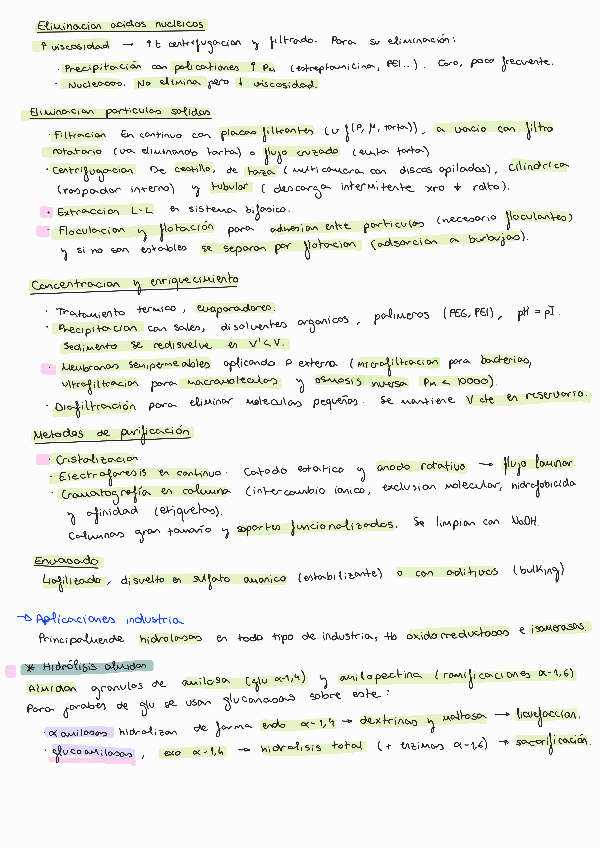 Eliminacion acidos nucleicos
↑ viscosidad → ↑t centrifugacion y filtrado. Para su eliminación:
· Precipitación con policationes ↑ Pm (estreptomicina, PEI...). Caro, poco frecuente.
· Nucleasas. No elimina pero ↓ viscosidad.
Eliminacion particulas solidas
· Filtracion En continuo con placas filtrantes (v f(P, μ, torta)), a vacio con filtro
rotatorio (va eliminando torta) o flujo cruzado (evita torta)
· Centrifugacion De cestillo, de taza (multicamara con discos apilados), cilindrica
(rospador interno) y tubular (descarga intermitente xro ↓ rdto).
· Extraccion L-L en sistema bifasico.
· Floculacion y flotación para adhesion entre particulas (necesario floculantes)
y si no son estables se separan por flotacion (adsorcion a burbujas).
Concentracion y enriquecimiento
· Tratamiento termico, evaporadores.
· Precipitacion con sales, disolventes organicos, polimeros (PEG, PEI), pH = pI.
Sedimento se redisuelve en V' < V.
· Membranas semipermeables aplicando P externa (microfiltracion para bacterias,
ultrafiltracion para macromoleculas y osmosis inversa Pm < 10000).
· Diafiltración para eliminar moleculas pequeñas. Se mantiene V cte en reservorio.
Metodos de purificación
· Cristalizacion
· Electroforesis en continuo. Catodo estatico y anodo rotativo → flujo laminar
· Cromatografía en columna (intercambio ionico, exclusion molecular, hidrofobicida
y afinidad (etiquetas).
Columnas gran tamaño y soportes funcionalizados. Se limpian con NaOH.
Envasado
Liofilizado, disuelto en sulfato amonico (estabilizante) o con aditivos (bulking)
→ Aplicaciones industria
Principalmente hidrolasas en todo tipo de industria, tb oxidorreductasas e isomerasas.
* Hidrólisis almidon
Almidon granulos de amilosa (glu α-1,4) y amilopectina (ramificaciones α-1,6)
Para jarabes de glu se usan glucanasas sobre este:
· α amilasas hidrolizan de forma endo α-1,4 → dextrinas y maltosa → licuefaccion.
· glucoamilasas, exo α-1,4 → hidrolisis total (+ enzimas α-1,6) → sacarificación.